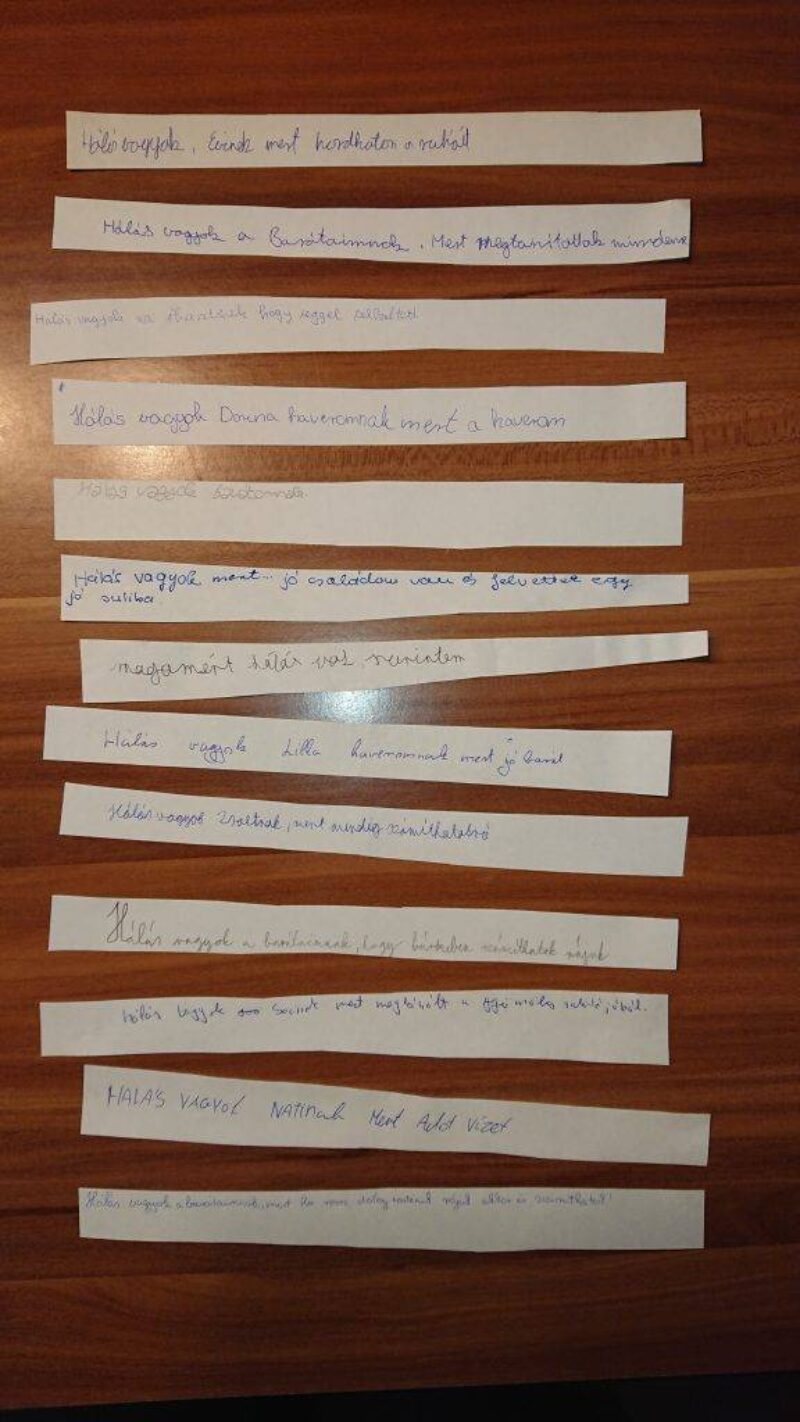 Hálás vagyok, Evinek mert hordhatom a ruháit
Hálás vagyok a Barátaimnak. Mert megtanítottak
Hálás vagyok az hogy reggel
Hálás vagyok Dorina haveromnak mert a haverom
Hálás vagyok
Hálás vagyok mert... jó családom van és felvettek egy
jó suliba
magamért hálás vok szerintem
Hálás vagyok Lilla haveromnak mert jó barát
Hálás vagyok Zsoltnak, mert mindig számíthatok rá
Hálás vagyok a barátaimnak, hogy bármiben számíthatok rájuk
hálás vagyok mert a
HALÁS VAGYOK NATINak Mert Adot Vizet
Hálás vagyok a barátaimnak, mert ha rossz dolog történik akkor is számíthatok